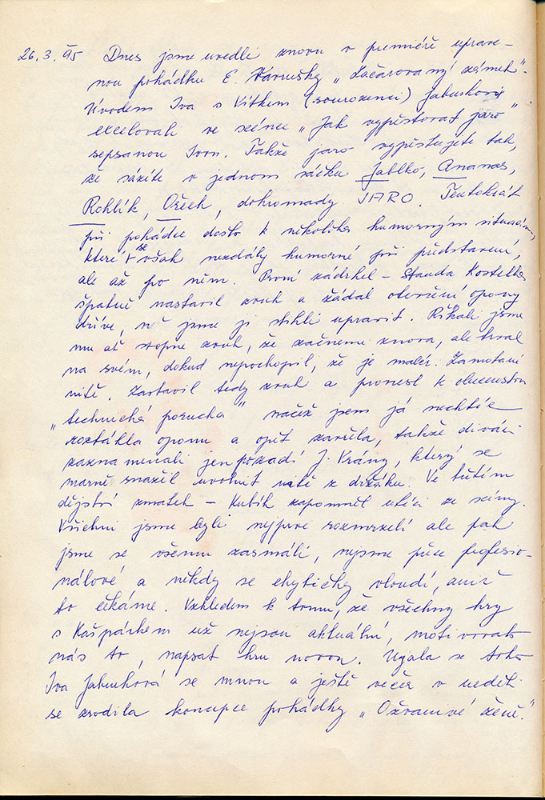 26. 3. 95 Dnes jsme uvedli znovu v premiéře uprave-
nou pohádku E. Vávrušky „Začarovaný zámek".
Úvodem Iva s Vítkem (sourozenci) Jahunkovi
excelovali ve scénce „Jak vypěstovat jaro"
sepsanou Ivou. Takže jaro vypěstujete tak,
že sázíte v jednom sáčku Jablko, Ananas,
Rohlík, Ořech, dohromady JARO. Tentokrát
při pohádce došlo k několika humorným situacím,
které se však nezdály humorné při představení,
ale až po něm. První zádrhel – Standa Kostelka
špatně nastavil zvuk a žádal otevření opony
dříve, než jsme ji stihli upravit. Říkali jsme
mu ať stopne zvuk, že začneme znova, ale trval
na svém, dokud nepochopil, že je malér. Zamotané
nitě. Zastavil tedy zvuk a pronesl k obecenstvu
„technická porucha" načež jsem já nechtíc
roztáhla oponu a opět zavřela, takže diváci
zaznamenali jen pozadí J. Vrány, který se
marně snažil uvolnit nitě z držáku. Ve třetím
dějství zmatek – Kubík zapomněl utéci ze scény.
Všichni jsme byli nejprve rozmrzelí ale pak
jsme se všemu zasmáli, nejsme přece profesio-
nálové a někdy se chybičky vloudí, aniž
to čekáme. Vzhledem k tomu, že všechny hry
s Kašpárkem už nejsou aktuální, motivovalo
nás to, napsat hru novou. Ujala se toho
Iva Jahunková se mnou a ještě večer v neděli
se zrodila koncepce pohádky „O zranivé ženě."